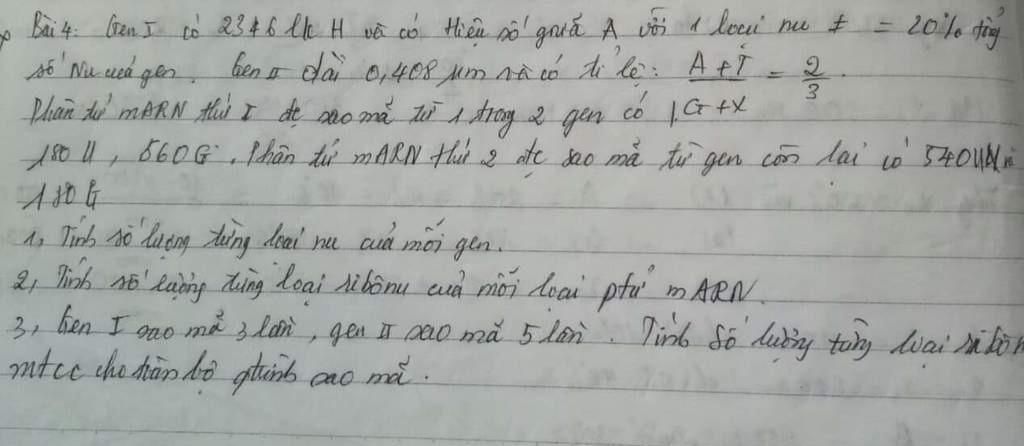 Bài 4: Gen I có 2346 lk H và có Hiệu số giữa A với 1 loại nu ≠ = 20% tổng
số Nu của gen. Gen II dài 0,408 µm và có tỉ lệ: A + T / G + X = 2/3.
Phân tử mARN thứ I đc sao mã từ 1 trong 2 gen có
180 U, 560 G. Phân tử mARN thứ 2 đc sao mã từ gen còn lại có 540 U và
180 G
1, Tính số lượng từng loại nu của mỗi gen.
2, Tính số lượng từng loại ribônu của mỗi loại ptử mARN.
3, Gen I sao mã 3 lần, gen II sao mã 5 lần. Tính số lượng từng loại ribôn
mtcc cho toàn bộ qtrình sao mã.